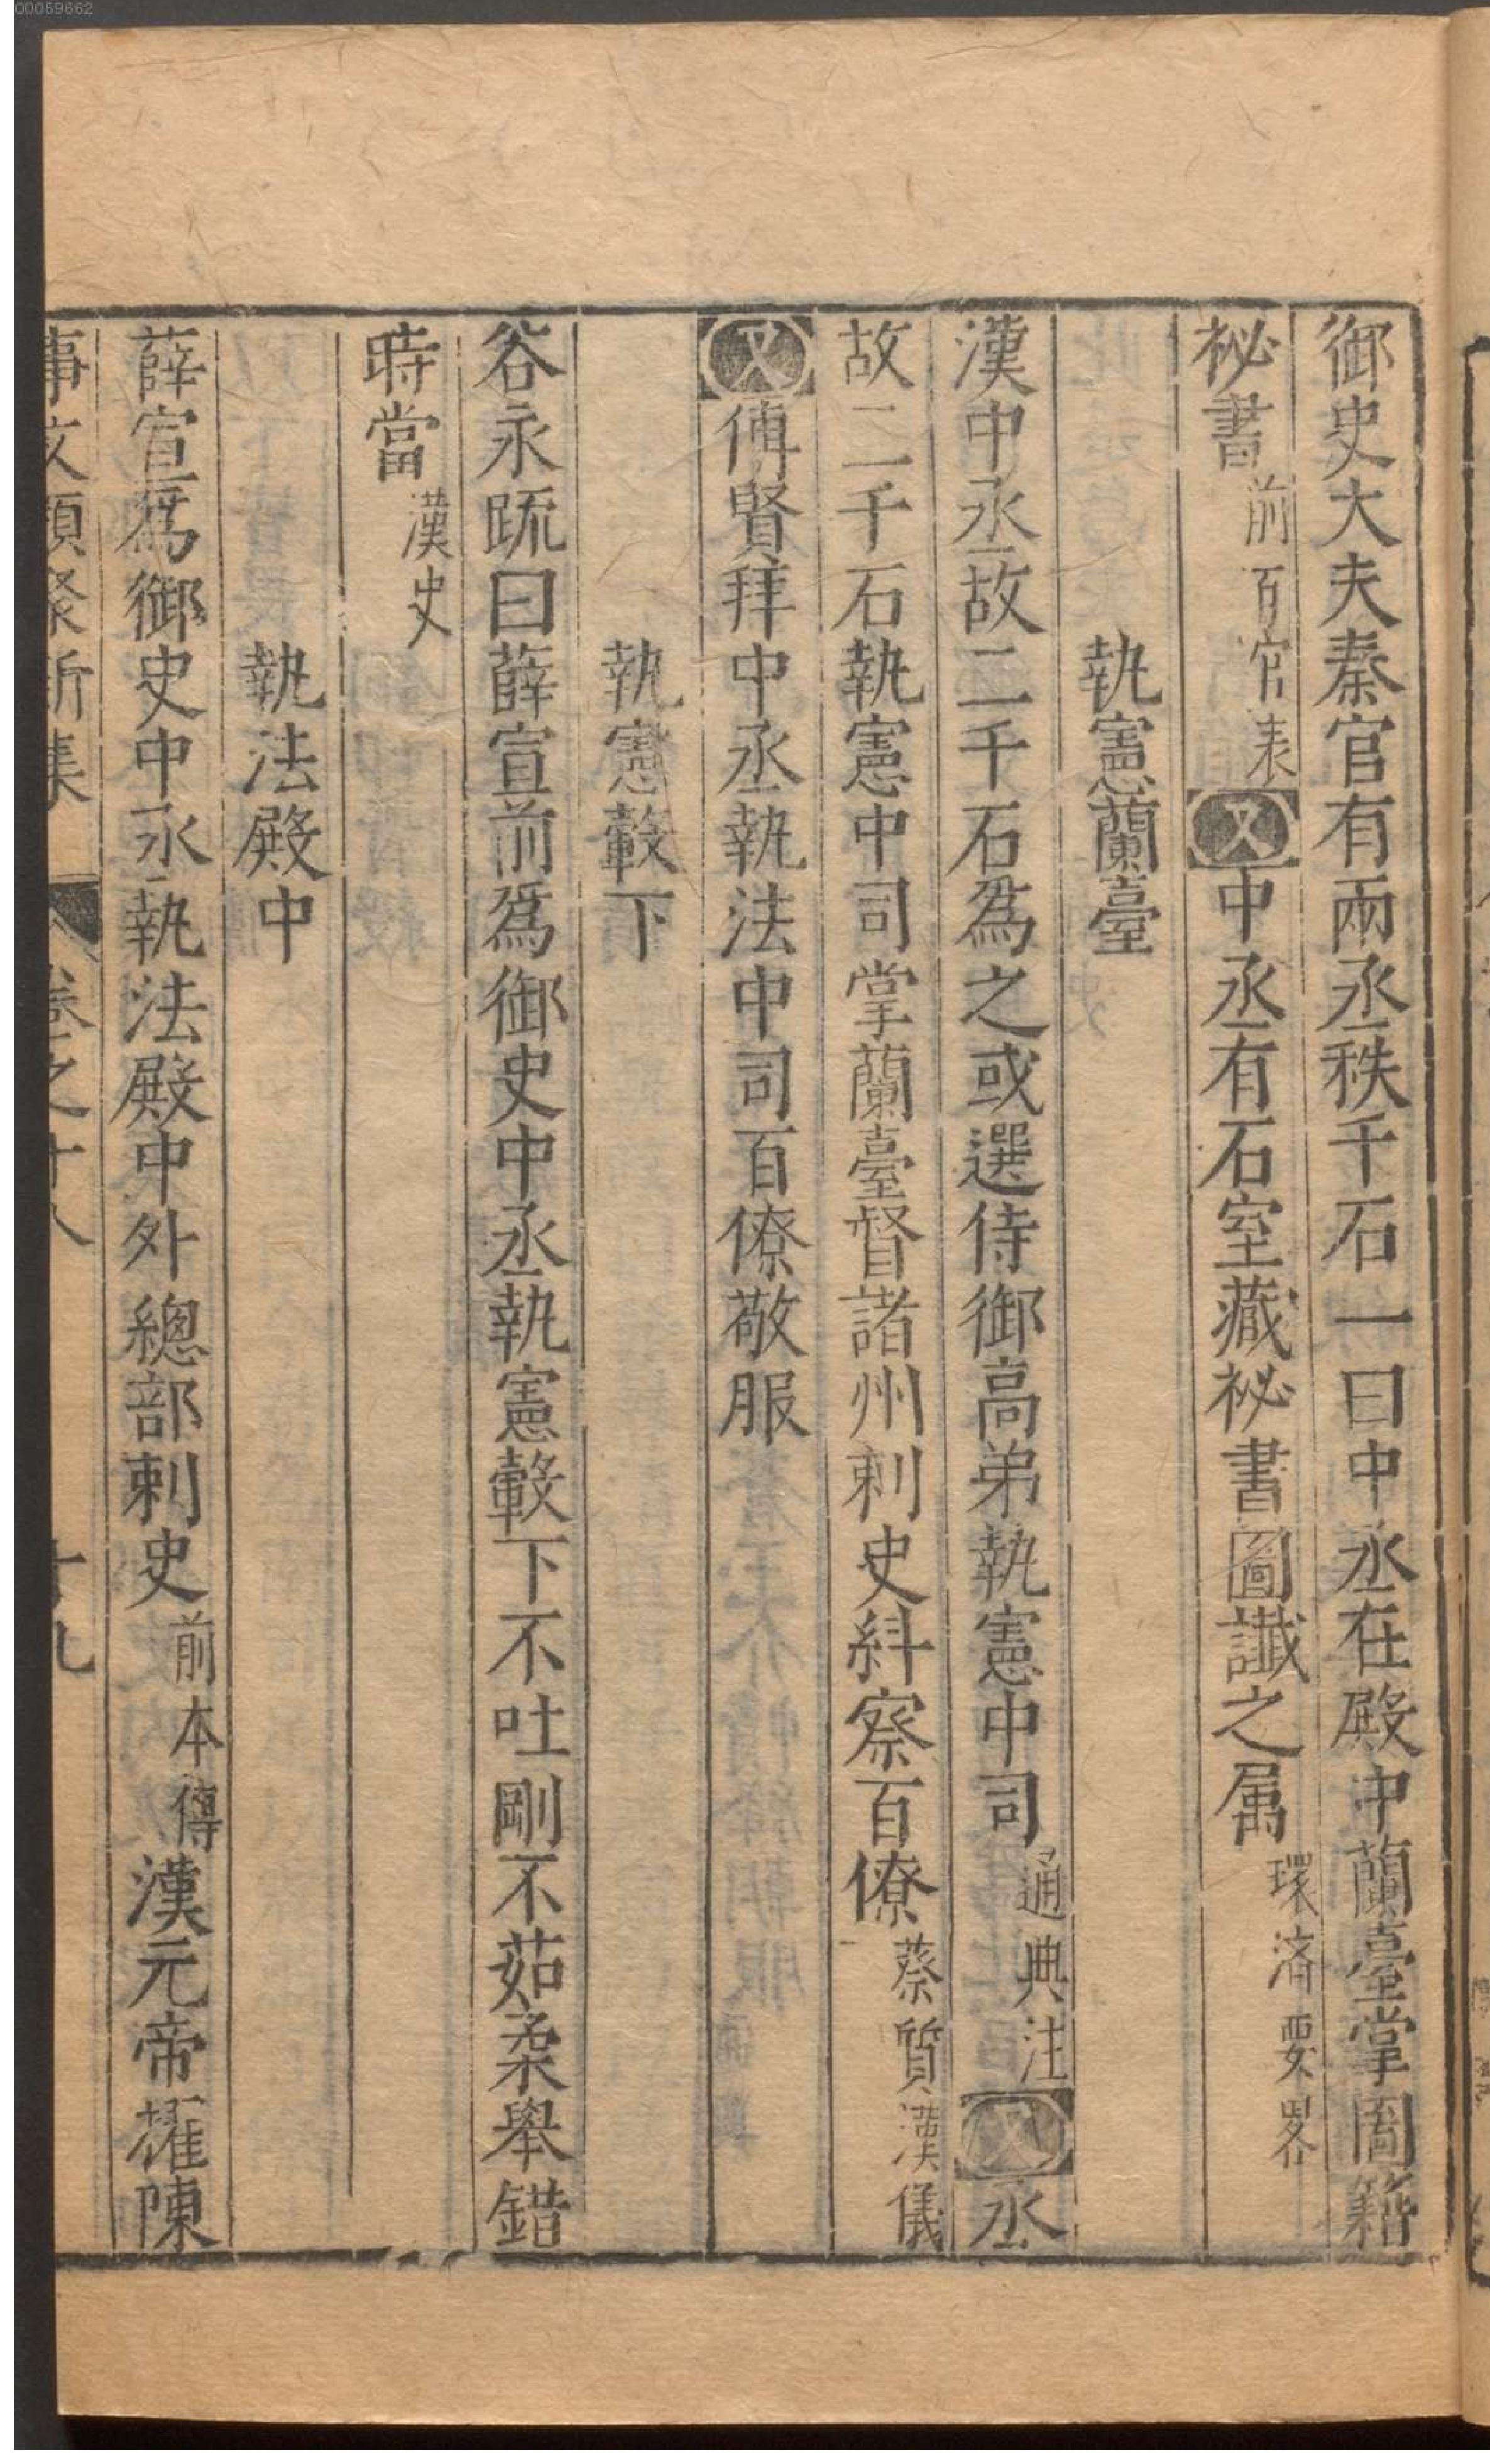 00059662
御史大夫秦官有兩丞秩千石一曰中丞在殿中蘭臺掌圖籍
祕書前百官表又中丞有石室藏祕書圖讖之属環済要畧
執憲蘭臺
漢中丞故二千石爲之或選侍御高弟執憲中司通典注又丞
故二千石執憲中司掌蘭臺督諸州刺史糾察百僚蔡質漢儀
又傅賢拜中丞執法中司百僚敬服
執憲轂下
谷永疏曰薛宣前爲御史中丞執憲轂下不吐剛不茹柔舉錯
時當漢史
執法殿中
薛宣爲御史中丞執法殿中外總部刺史前本傳漢元帝擢陳
事文類聚新集 卷之十八 十九